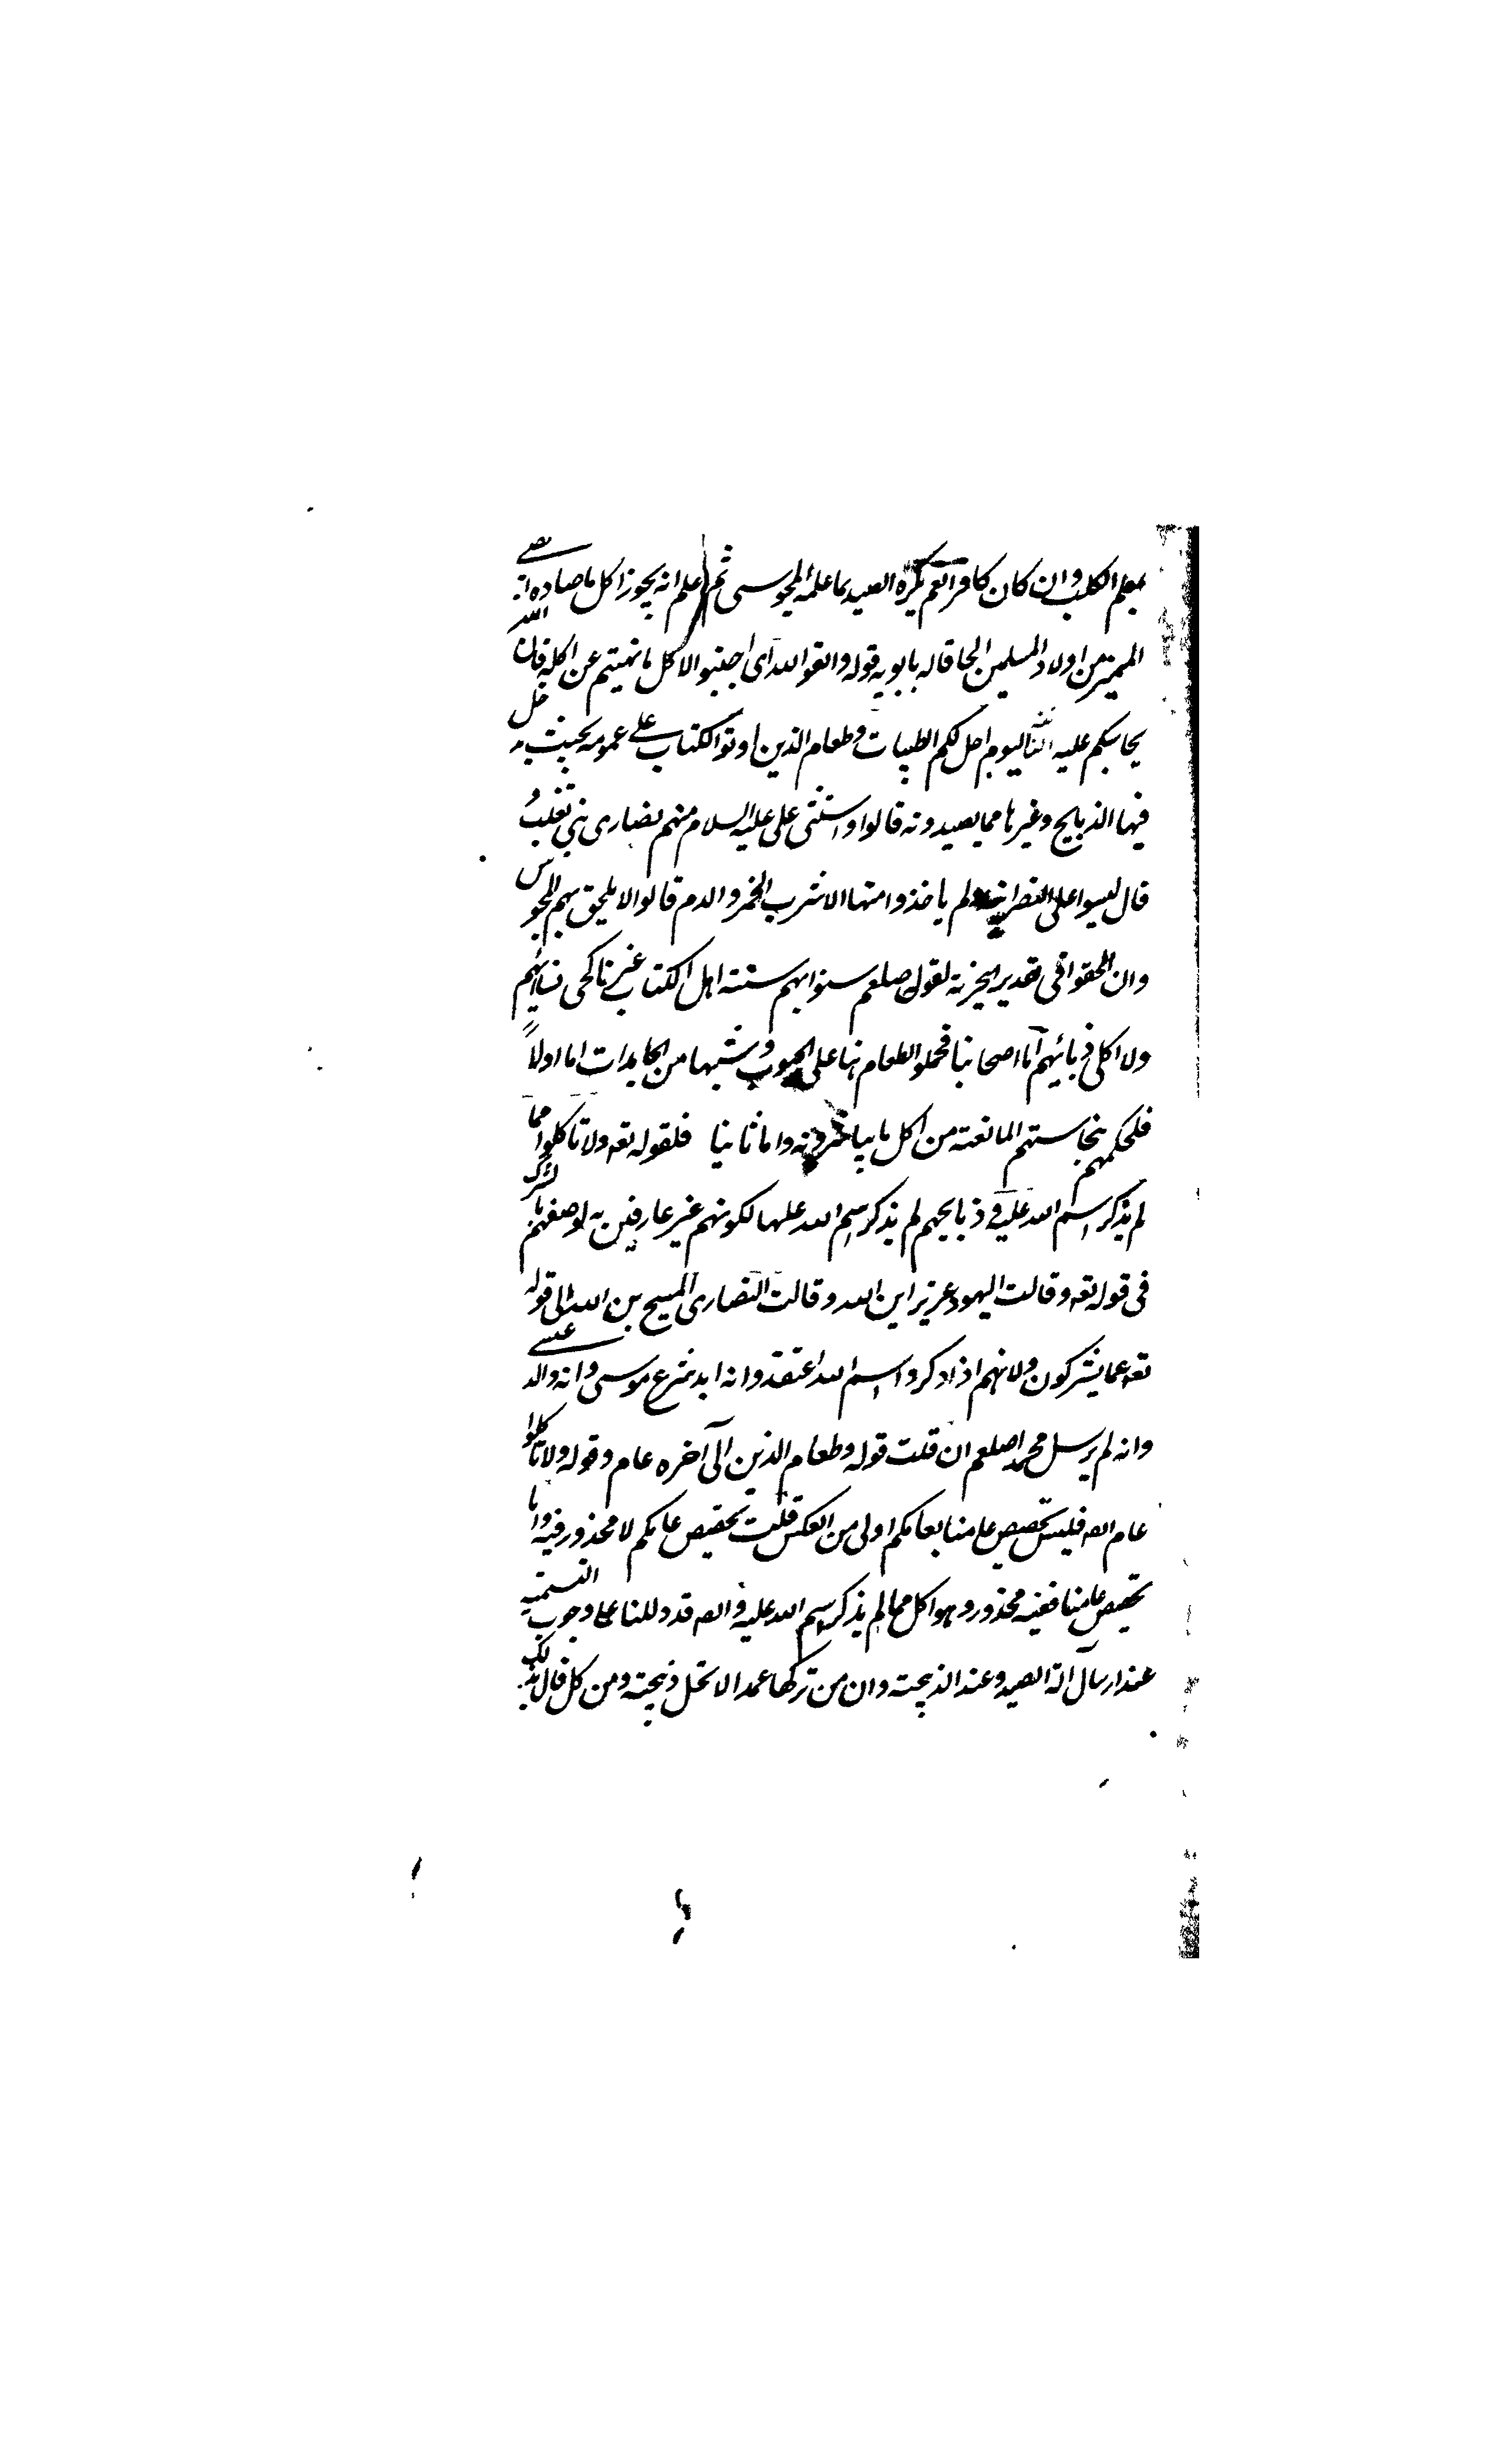 معلم الكلب وان كان كافرا نعم يكره الصيد بما علمه المجوسى ثم اعلم انه يجوز اكل ما صاده الصبى
المميز من اولاد المسلمين الحا قاله بابويه قوله واتقوا الله اى اجتنبوا الاكل ما نهيتم عن اكله فان الله
يحاسبكم عليه اليوم احل لكم الطيبات وطعام الذين اوتوا الكتاب على عمومه بحيث يدخل
فيها الذبايح وغيرها مما يصيدونه قالوا واستثنى على عليه السلام منهم نصارى بنى تغلب و
قال ليسوا على النصرانية ولم ياخذوا منها الا شرب الخمر والدم قالوا لا يلحق بهم المجوس
وان الحقوا فى تقدير الجزية لقوله صلعم سنوا بهم سنته اهل الكتاب غير ناكحى نسائهم
ولا اكلى ذبائهم اما اصحابنا فحملوا الطعام هنا على الحبوب وشبهها من الجامدات اما اولاً
فلحكمهم بنجاستهم المانعة من اكل ما يباشرونه واما ثانيا فلقوله تعه ولا تاكلوا مما
لم يذكر اسم الله عليه فى ذبايحهم لم يذكر اسم الله عليها لكونهم غير عارفين به لوصفهم بالشرك
فى قوله تعه وقالت اليهود عزير ابن الله وقالت النصارى المسيح بن الله الى قوله
تعه عما يشركون ولانهم اذا ذكروا اسم الله اعتقدوا انه ابد شرع موسى وانه والد عيسى
وانه لم يرسل محمدا صلعم ان قلت قوله وطعام الذين الى آخره عام وقوله ولا تاكلوا
عام الصه فليس تخصيص عامنا بعامكم اولى من العكس قلت تخصيص عامكم لا محذور فيه واما
تخصيص عامنا ففيه محذور وهو اكل مما لم يذكر اسم الله عليه والصه قد دللنا على وجوب التسمية
عند ارسال الة الصيد وعند الذبيحته وان من تركها عمدا لا تحل ذبيحته ومن كل قال بذلك